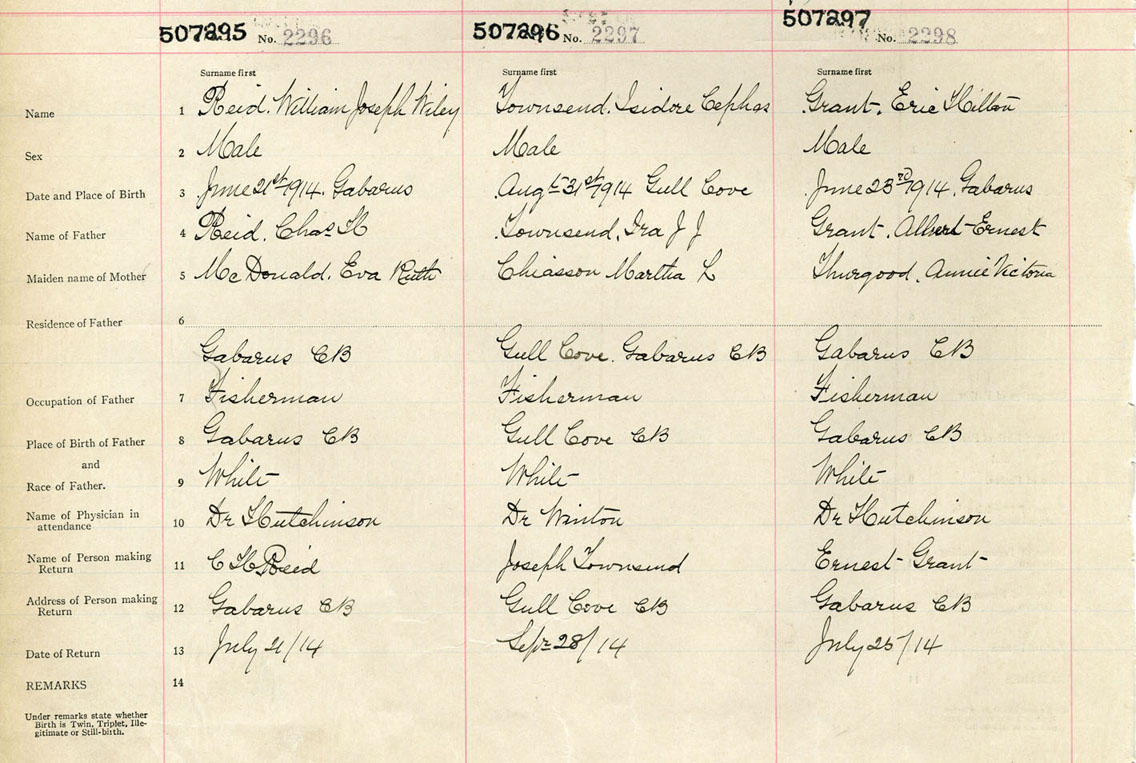 507295 No. 2296 507296 No. 2297 507297 No. 2298
Surname first Surname first Surname first
Name 1 Reid. William Joseph Wiley Townsend. Isidore Cephas Grant. Eric Hilton
Sex 2 Male Male Male
Date and Place of Birth 3 June 21st 1914. Gabarus Augt 31st 1914 Gull Cove June 23rd 1914. Gabarus
Name of Father 4 Reid. Chas H Townsend, Ira J J Grant. Albert Ernest
Maiden name of Mother 5 McDonald. Eva Ruth Chiasson Martha L Thurgood. Annie Victoria
Residence of Father 6
Gabarus CB Gull Cove. Gabarus CB Gabarus CB
Occupation of Father 7 Fisherman Fisherman Fisherman
Place of Birth of Father 8 Gabarus CB Gull Cove CB Gabarus CB
and
Race of Father. 9 White White White
Name of Physician in
attendance 10 Dr Hutchinson Dr Winton Dr Hutchinson
Name of Person making
Return 11 C H Reid Joseph Townsend Ernest Grant
Address of Person making
Return 12 Gabarus CB Gull Cove CB Gabarus CB
Date of Return 13 July 21/14 Sept 28/14 July 25/14
REMARKS 14
Under remarks state whether
Birth is Twin, Triplet, Ille-
gitimate or Still-birth.